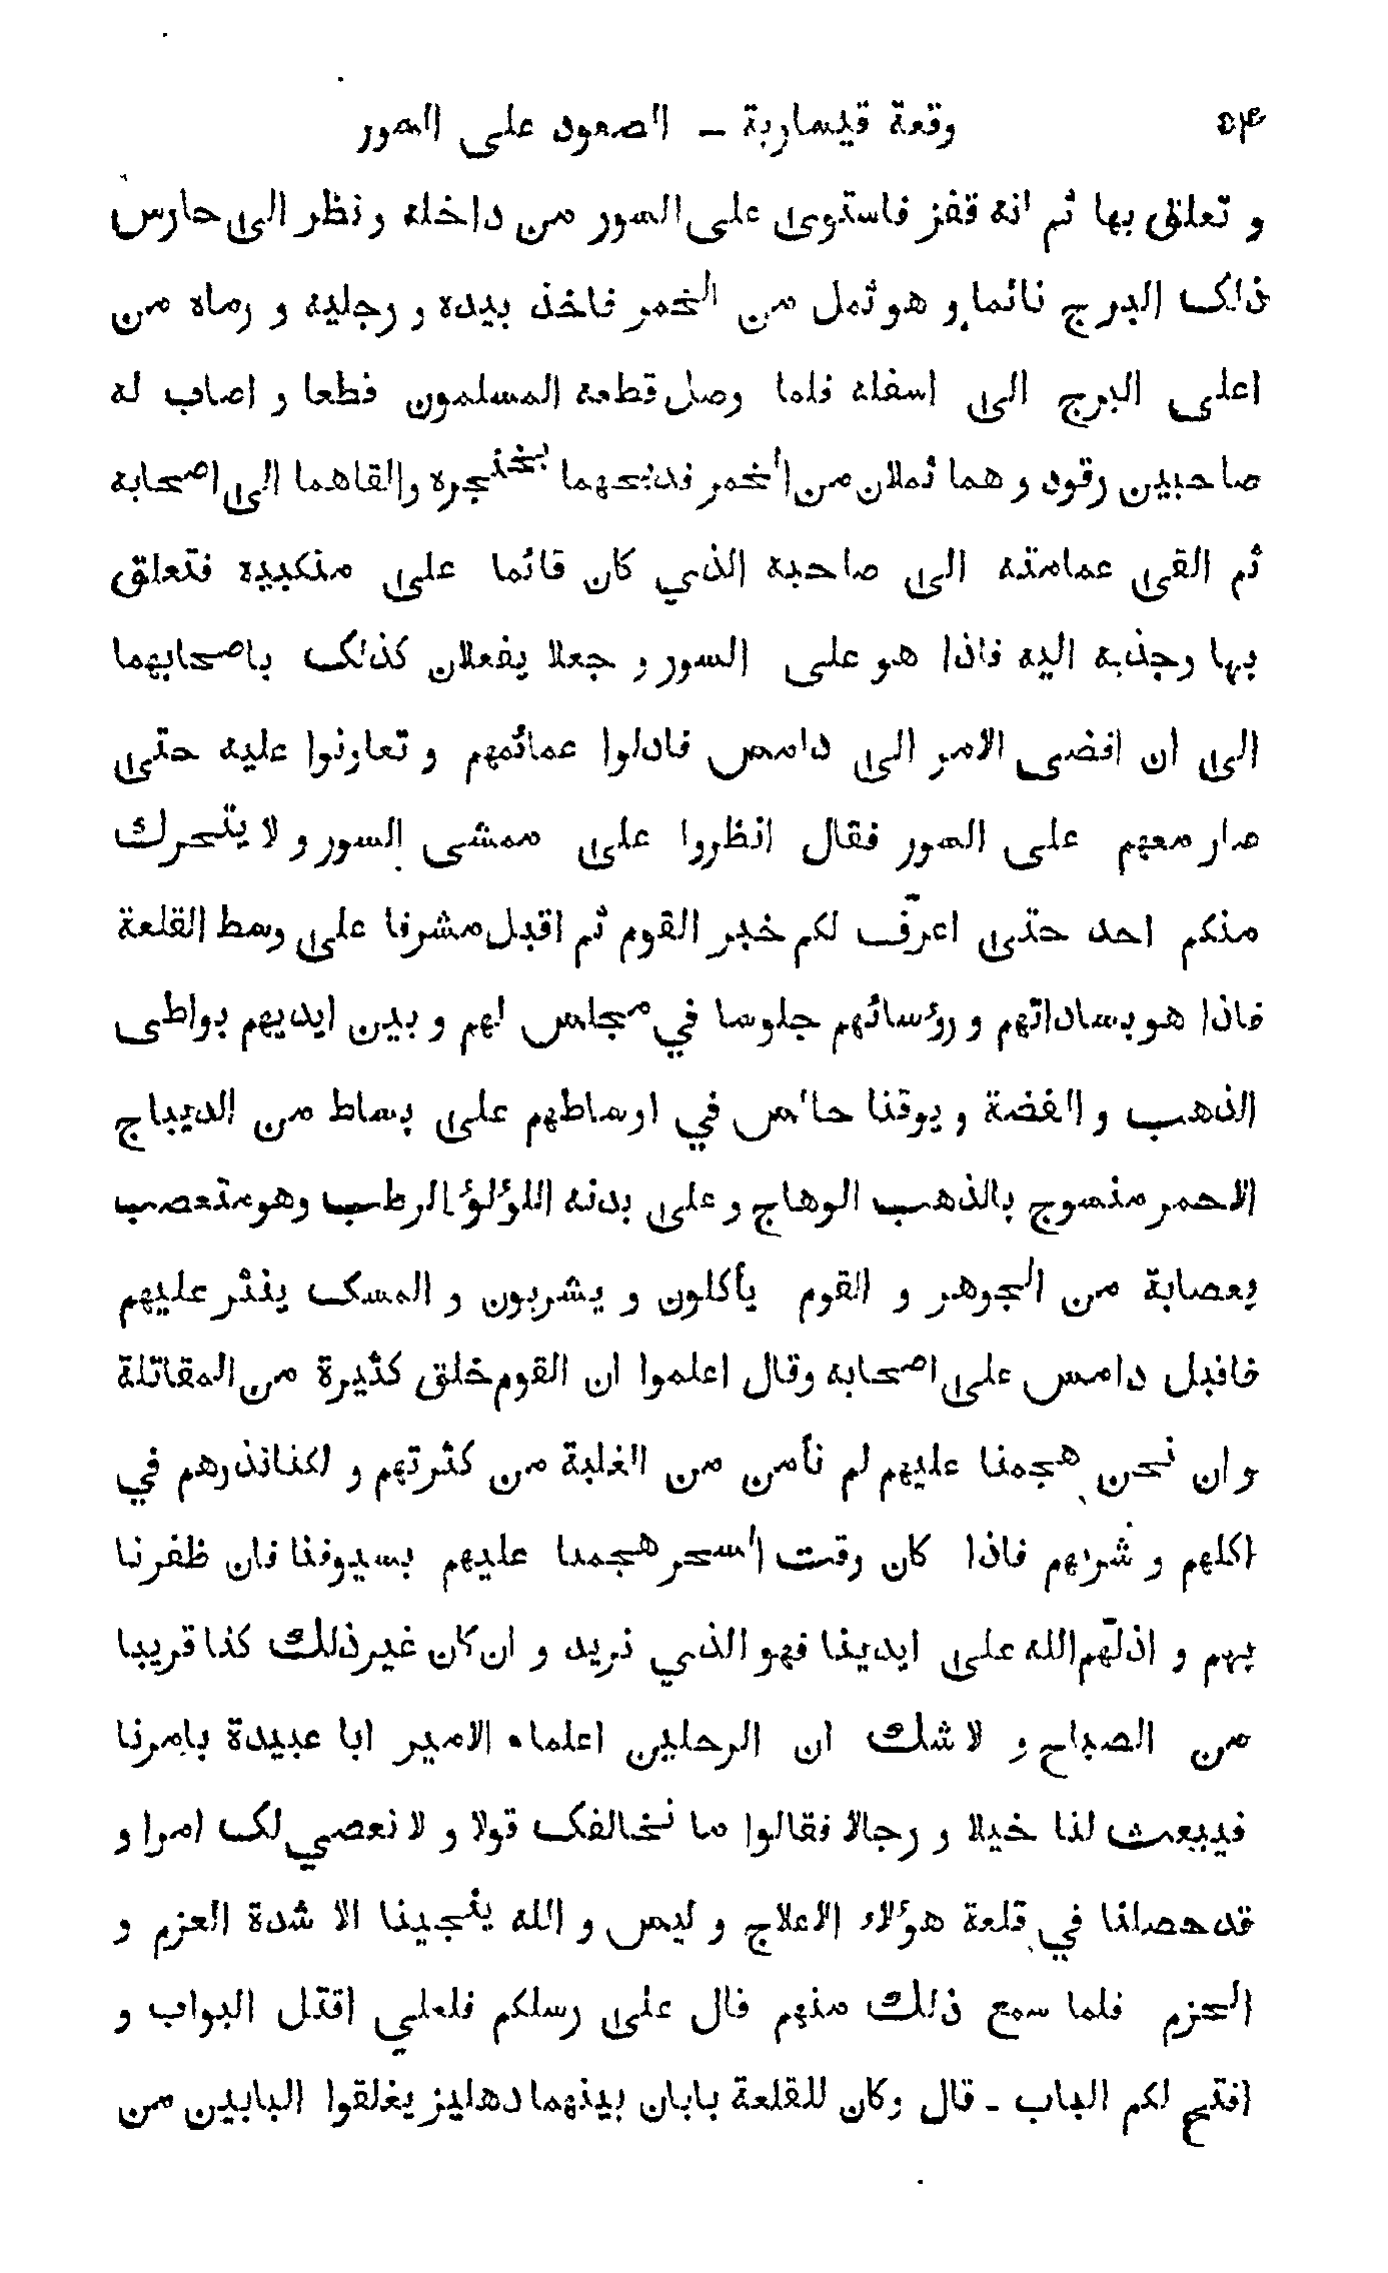 ٥٤ وقعة قيسارية ــ الصعود على السور
و تعلق بها ثم انه قفز فاستوى على السور من داخله و نظر الى حارس
ذلك البرج نائما و هو ثمل من الخمر فاخذ بيده و رجليه و رماه من
اعلى البرج الى اسفله فلما وصل قطعه المسلمون قطعا و اصاب له
صاحبين رقود و هما ثملان من الخمر فذبحهما بخنجره والقاهما الى اصحابه
ثم القى عمامته الى صاحبه الذي كان قائما على منكبيه فتعلق
بها وجذبه اليه فاذا هو على السور و جعلا يفعلان كذلك باصحابهما
الى ان افضى الامر الى دامس فادلوا عمائمهم و تعاونوا عليه حتى
صار معهم على السور فقال انظروا على ممشى السور و لا يتحرك
منكم احد حتى اعرّف لكم خبر القوم ثم اقبل مشرفا على وسط القلعة
فاذا هو بساداتهم و رؤسائهم جلوسا في مجلس لهم و بين ايديهم بواطى
الذهب و الفضة و يوقنا جالس في اوساطهم على بساط من الديباج
الاحمر منسوج بالذهب الوهاج و على بدنه اللؤلؤ الرطب وهو متعصب
بعصابة من الجوهر و القوم يأكلون و يشربون و المسك ينثر عليهم
فاقبل دامس على اصحابه وقال اعلموا ان القوم خلق كثيرة من المقاتلة
و ان نحن هجمنا عليهم لم نأمن من الغلبة من كثرتهم و لكنا نذرهم في
اكلهم و شربهم فاذا كان وقت السحر هجمنا عليهم بسيوفنا فان ظفرنا
بهم و اذلّهم الله على ايدينا فهو الذي نريد و ان كان غير ذلك كنا قريبا
من الصباح و لا شك ان الرجلين اعلماه الامير ابا عبيدة بامرنا
فيبعث لنا خيلا و رجالا فقالوا ما نخالفك قولا و لا نعصي لك امرا و
قد حصلنا في قلعة هؤلاء الاعلاج و ليس و الله ينجينا الا شدة العزم و
الحزم فلما سمع ذلك منهم قال على رسلكم فلعلي اقتل البواب و
افتح لكم الباب ـ قال وكان للقلعة بابان بينهما دهليز يغلقوا البابين من